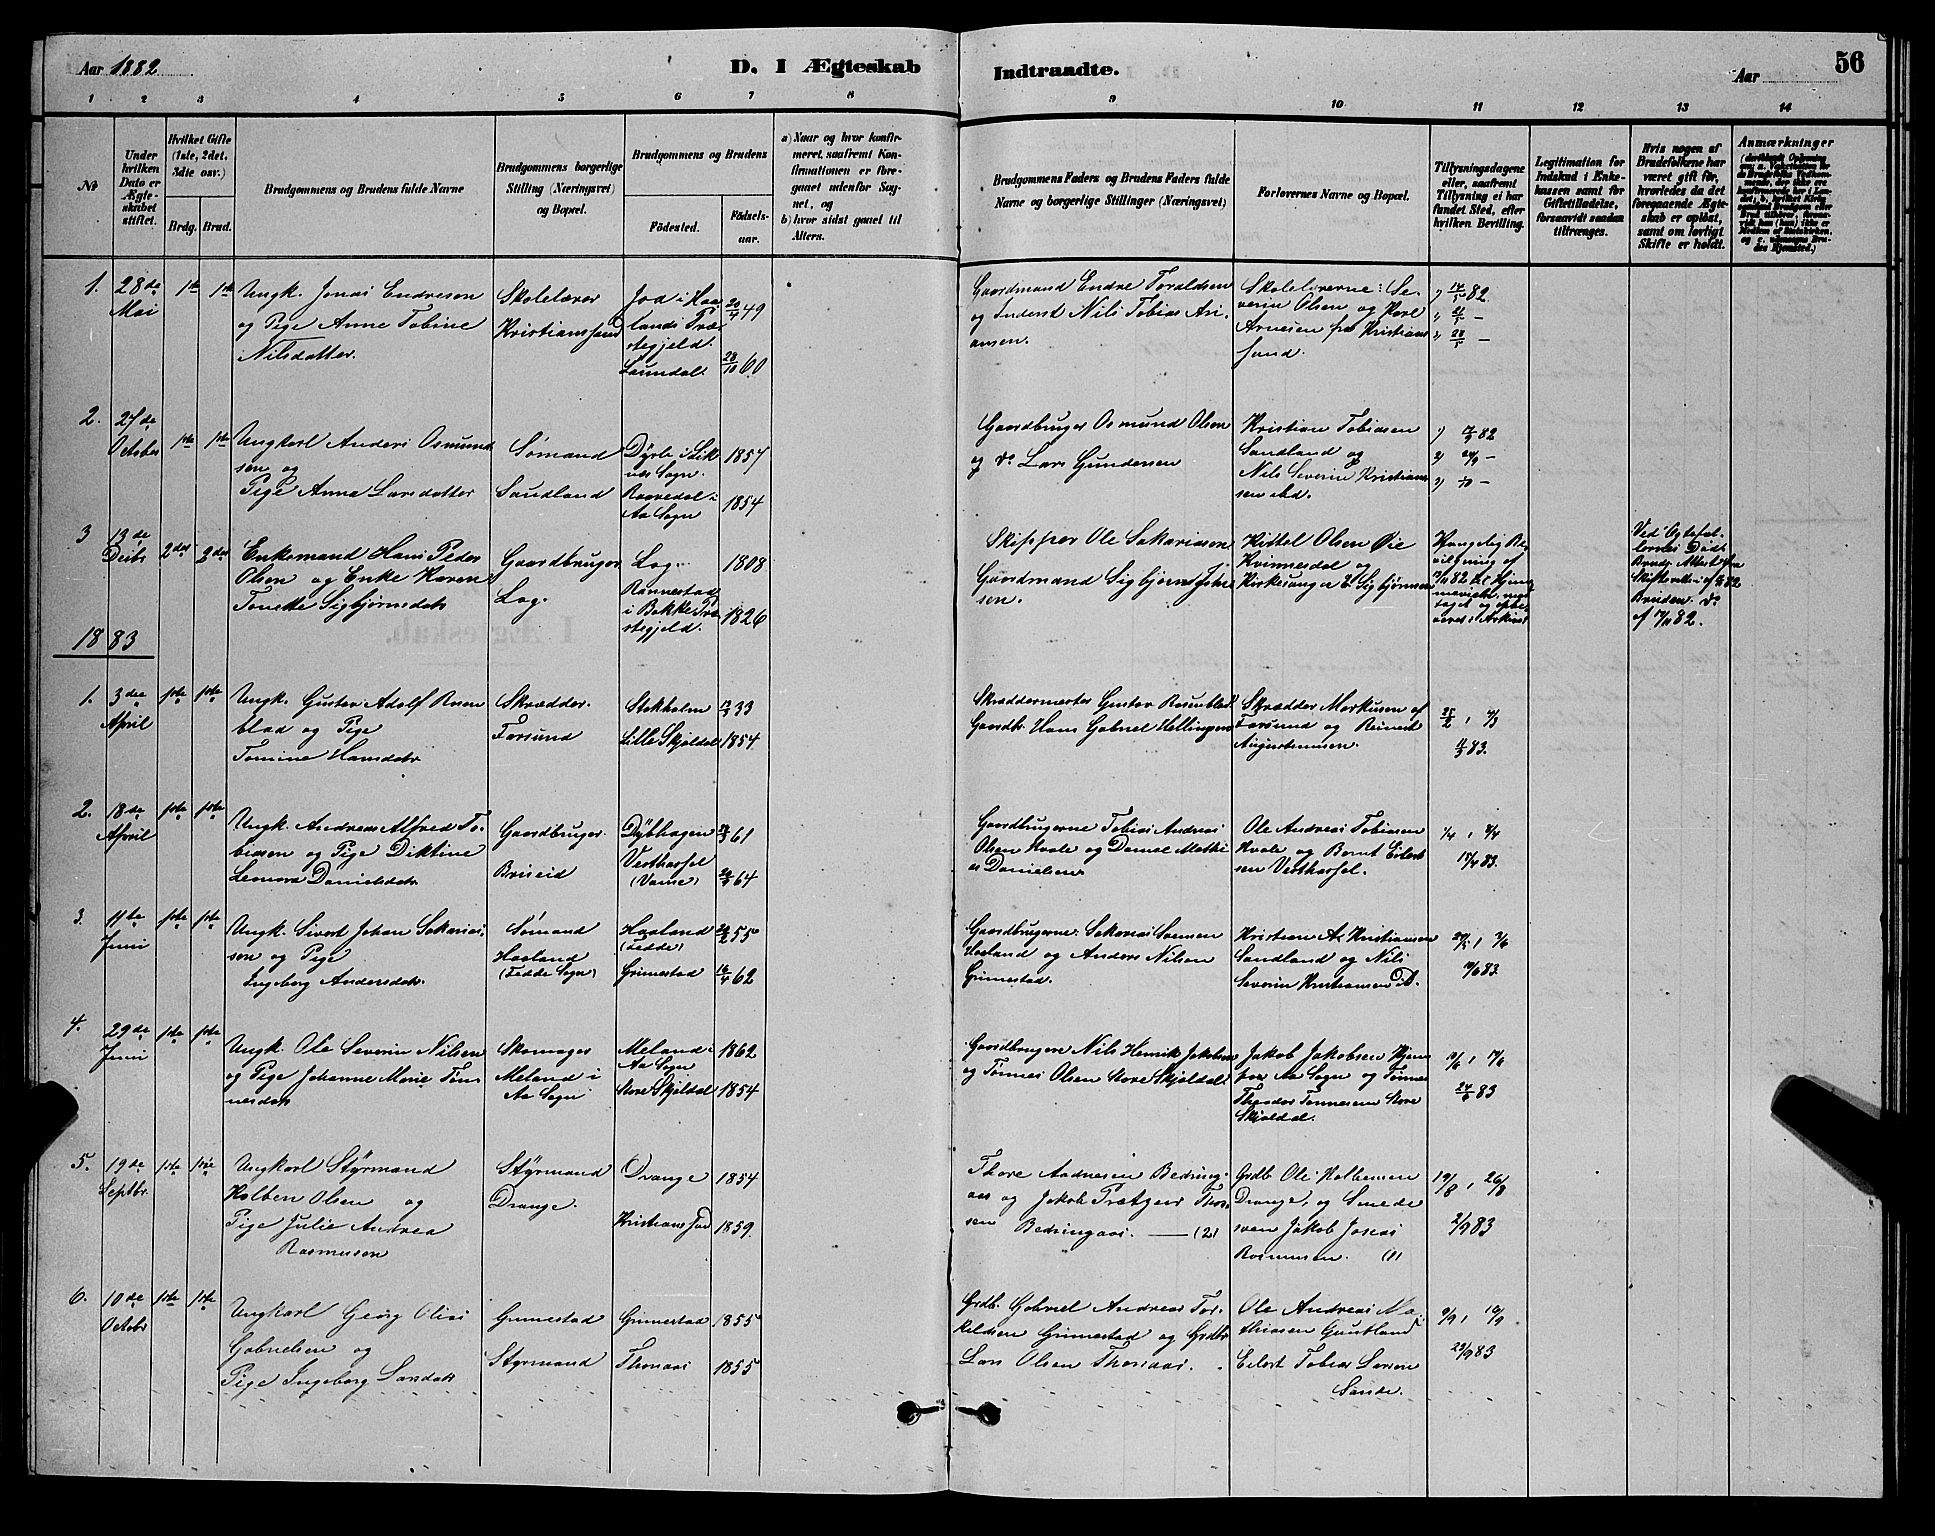 Aar 1882
D. I Ægteskab
Indtraadte.
Aar
56
1 2 3 4 5 6 7 8
9 10 11 12 13 14
№
Under
hvilken
Dato er
Ægte-
skabet
stiftet.
Hvilket Gifte
(1ste, 2det,
3die osv.)
Brdg. Brud.
Brudgommens og Brudens fulde Navne
Brudgommens borgerlige
Stilling (Næringsvei)
og Bopæl.
Brudgommens og Brudens
Fødested.
Fødsels-
aar.
a) Naar og hvor konfir-
meret, saafremt Kon-
firmationen er fore-
gaaet udenfor Sog-
net, og
b) hvor sidst gaaet til
Alters.
Brudgommens Faders og Brudens Faders fulde
Navne og borgerlige Stillinger (Næringsvei)
Forlovernes Navne og Bopæl.
Tillysningsdagene
eller, saafremt
Tillysning ei har
fundet Sted, efter
hvilken Bevilling.
Legitimation for
Indskud i Enke-
kassen samt for
Giftetilladelse,
forsaavidt saadan
tiltrænges.
Hvis nogen af
Brudefolkene har
været gift før,
hvorledes da det
foregaaende Ægte-
skab er opløst,
samt om lovligt
Skifte er holdt.
Anmærkninger
1. 28de
Mai
1ste 1ste
Ungk. Jonas Endresen
og Pige Anne Tobine
Nilsdatter
Skolelærer
Kristianssand
Jod i Haa-
lands Præ-
stegjeld. 20/4 49
Laundal. 28/10 60
Gaardmand Endre Toraldsen
og Inderst Nils Tobias Ari-
ansen.
Skolelærerne: Se-
verin Olsen og Karl
Arnesen fra Kristians-
sand.
1) 14/5 82
2) 21/5 –
3) 28/5 –
2. 27de
October
1ste 1ste
Ungkarl Anders Osmund
sen og
Pige Anna Larsdatter
Sømand
Sandland
Dyrli i Lik-
nes Sogn. 1857
Raavedal i
Aa Sogn 1854
Gaardbruger Osmund Olsen
og do Lars Gundersen
Kristian Tobiasen
Sandland og
Nils Severin Kristian-
sen ibd.
1) 17/9 82
2) 24/9 –
3) 1/10 –
3 13de
Decbr
2det 2det
Enkemand Hans Peder
Olsen og Enke Karen
Toneke Sigbjørnsdatr
Gaardbruger
Log.
Log. 1808
Rannestad
i Bakke Præ-
stegjeld. 1826
Skipper Ole Sakariasen
Gaardmand Sigbjørn John
sen.
Kittel Olsen Øie
Kvinnesdal og
Kirkesanger E. Sigbjørnsen
Kongelig Be-
vilgning af
Ved Ægtefæl-
lernes Død.
Brudg. Attest fra
Skifteretten af
Bruden do
af 7/11 82.
1883
1. 3die
April
1ste 1ste
Ungk. Gustav Adolf Rosen
blad og Pige
Tomine Hansdatr
Skrædder.
Farsund
Stokholm 33
Lille Skjoldal 1854
Skræddermester Gustav Rosenblad
Gaardbr. Hans Gabriel Hellingsen
Skrædder Markusen af
Farsund og Reinert
Augustinusen.
25/2, 4/3
11/3 83.
2. 18de
April
1ste 1ste
Ungk. Andreas Alfred To-
biasen og Pige Diktine
Leonora Danielsdatr
Gaardbruger.
Briseid
Dybhagen 61
Vestkarsel
(Vanse) 64
Gaardbrugerne Tobias Andreas
Olsen Hvale og Daniel Mathi
as Danielsen
Ole Andreas Tobiasen
Hvale og Bernt Eilert
sen Vestkarsel.
1/4, 8/4
15/4 83.
3. 11te
Juni
1ste 1ste
Ungk. Sivert Johan Sakarias-
sen og Pige
Ingeborg Andersdatr.
Sømand
Haaland
(Fedde Sogn)
Haaland
(Fedde) 55
Grimestad 16/4 62
Gaardbrugerne Sakarias Svensen
Haaland og Anders Nilsen
Grimestad.
Kristian A. Kristiansen
Sandland og Nils
Severin Kristiansen
27/5, 3/6
10/6 83.
4. 29de
Juni
1ste 1ste
Ungk. Ole Severin Nilsen
og Pige Johanne Marie Tøn-
nesdatr
Skomager
Meland i
Aa Sogn
Meland
Aa Sogn 1862
Store Skjoldal 1854
Gaardbrugere Nils Henrik Jakobsen
og Tønnes Olsen Store Skjoldal.
Jakob Jakobsen
Aa Sogn og Tønnes
Theodor Tønnesen Store
Skjoldal.
10/6, 17/6
24/6 83
5. 19de
Septbr.
1ste 1ste
Ungkarl Styrmand
Halben Olsen og
Pige Julie Andrea
Rasmusen
Styrmand
Drange.
Drange 1854
Kristianssand 1859.
Thore Aadnesen Bedring-
aas og Jakob Prætzen Thor-
sen Bedringaas. — (2)
Grdb. Ole Halbensen
Drange, og Smede
sven Jakob Josias
Rasmusen. (1)
19/8, 26/8
2/9 83
6. 10de
Octobr
1ste 1ste
Ungkarl Georg Olias
Gabrielsen og
Pige Ingeborg Larsdatr
Grimestad
Styrmand
Grimestad 1855
Thonaas 1855
Grdb. Gabriel Andreas Tor-
kildsen Grimestad og Grdbr
Lars Olsen Thonaas.
Ole Andreas Ma-
thiasen Guntland
Eilert Tobias Larsen
Sande.
9/9, 16/9
23/9 83